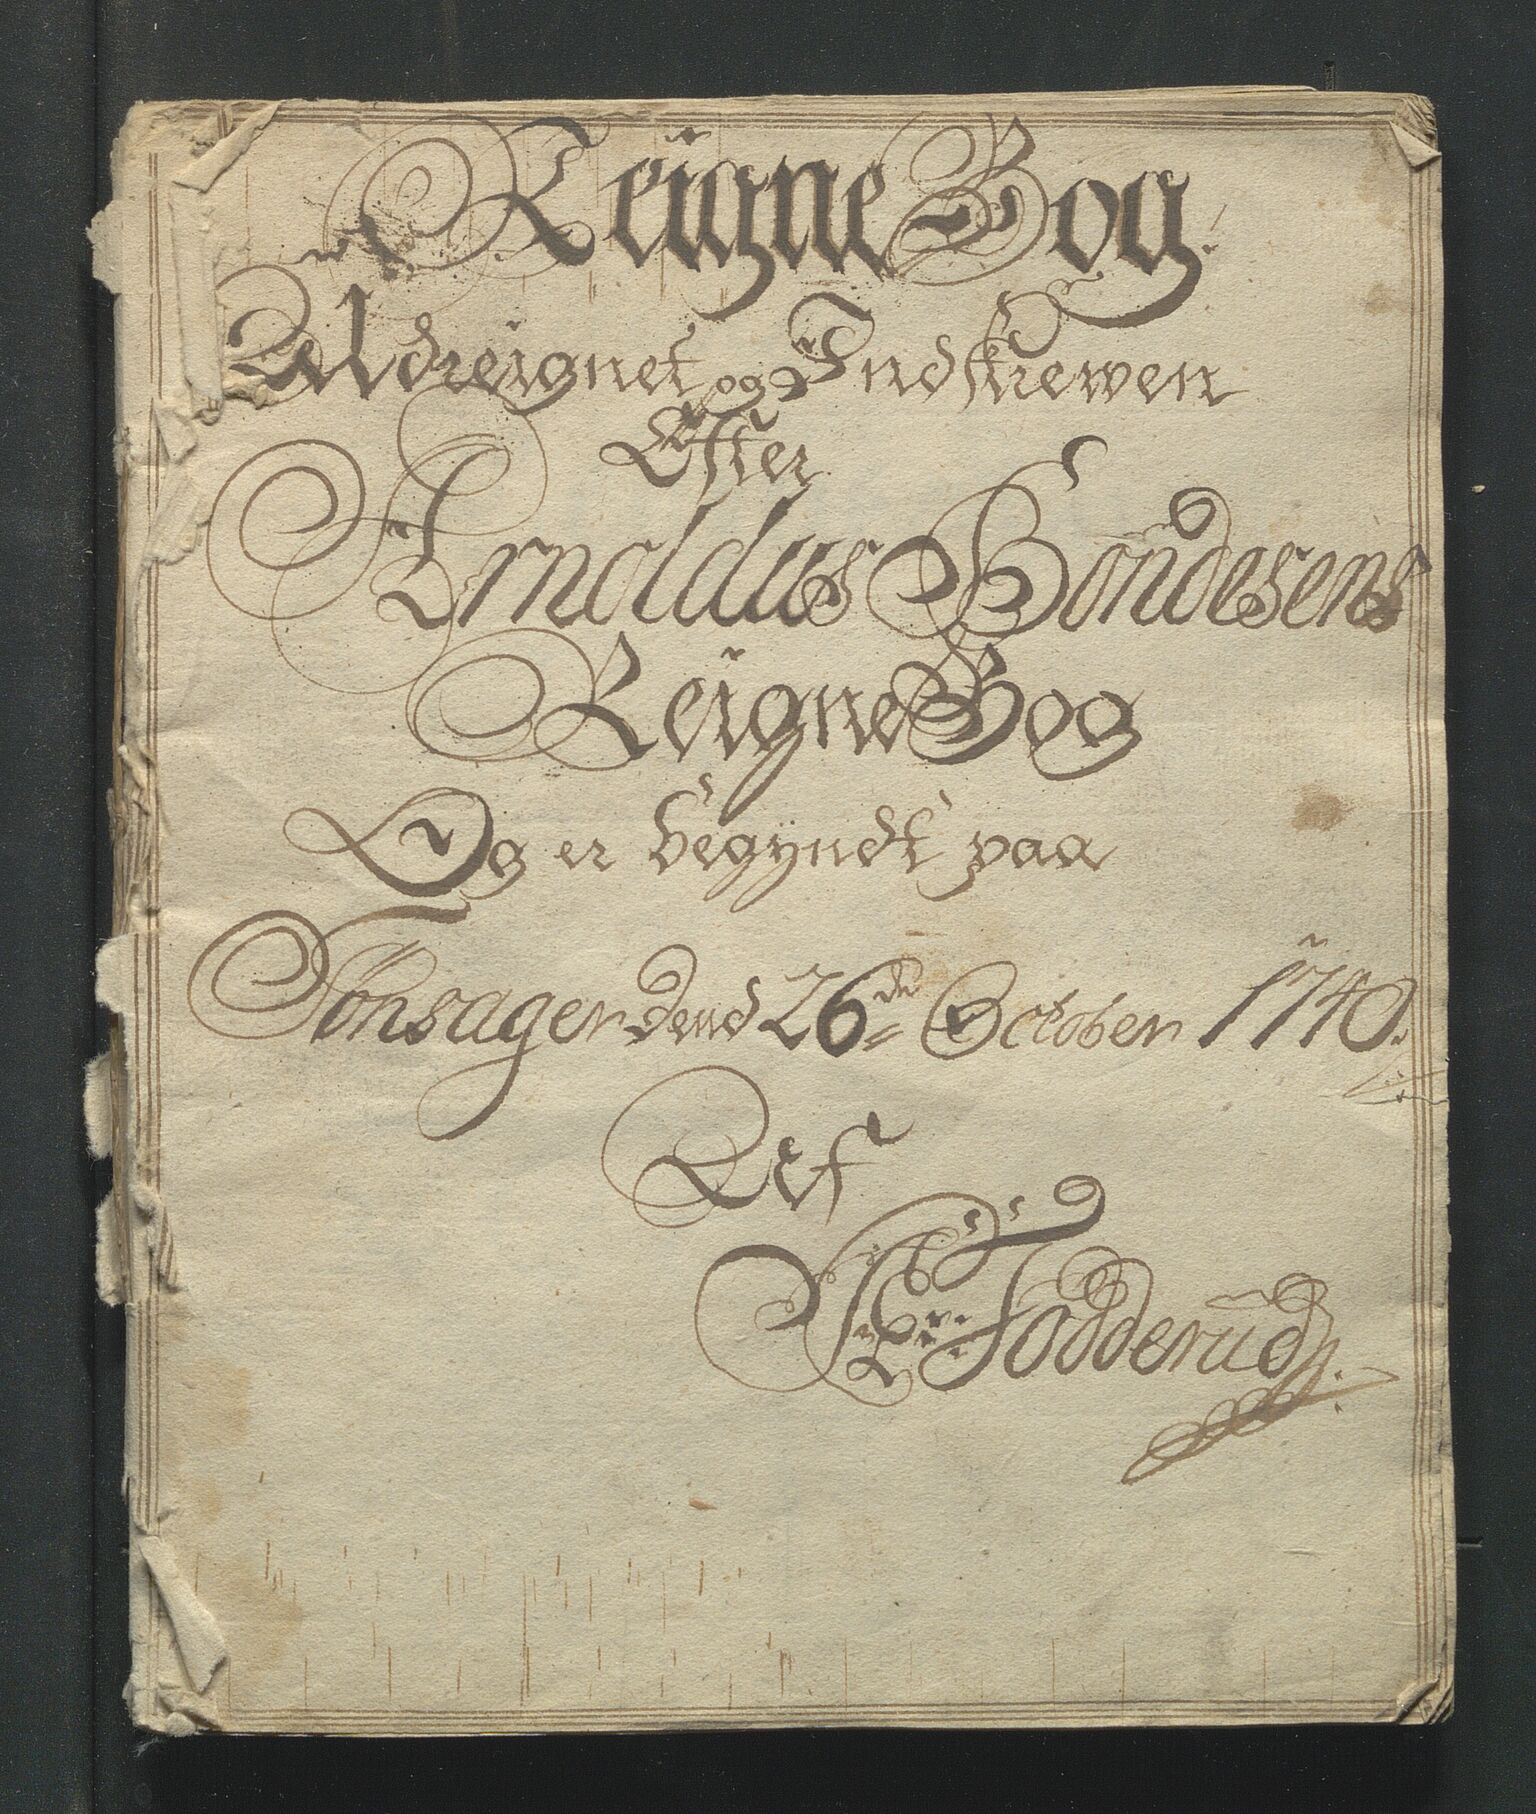 Reigne Bog.
Udreignet og Indskrewen
Efter
Arnoldus Bondesens
Reigne Bog
Og er begyndt paa
Tönsager dend 26de October 1740.
Af
Fodderud